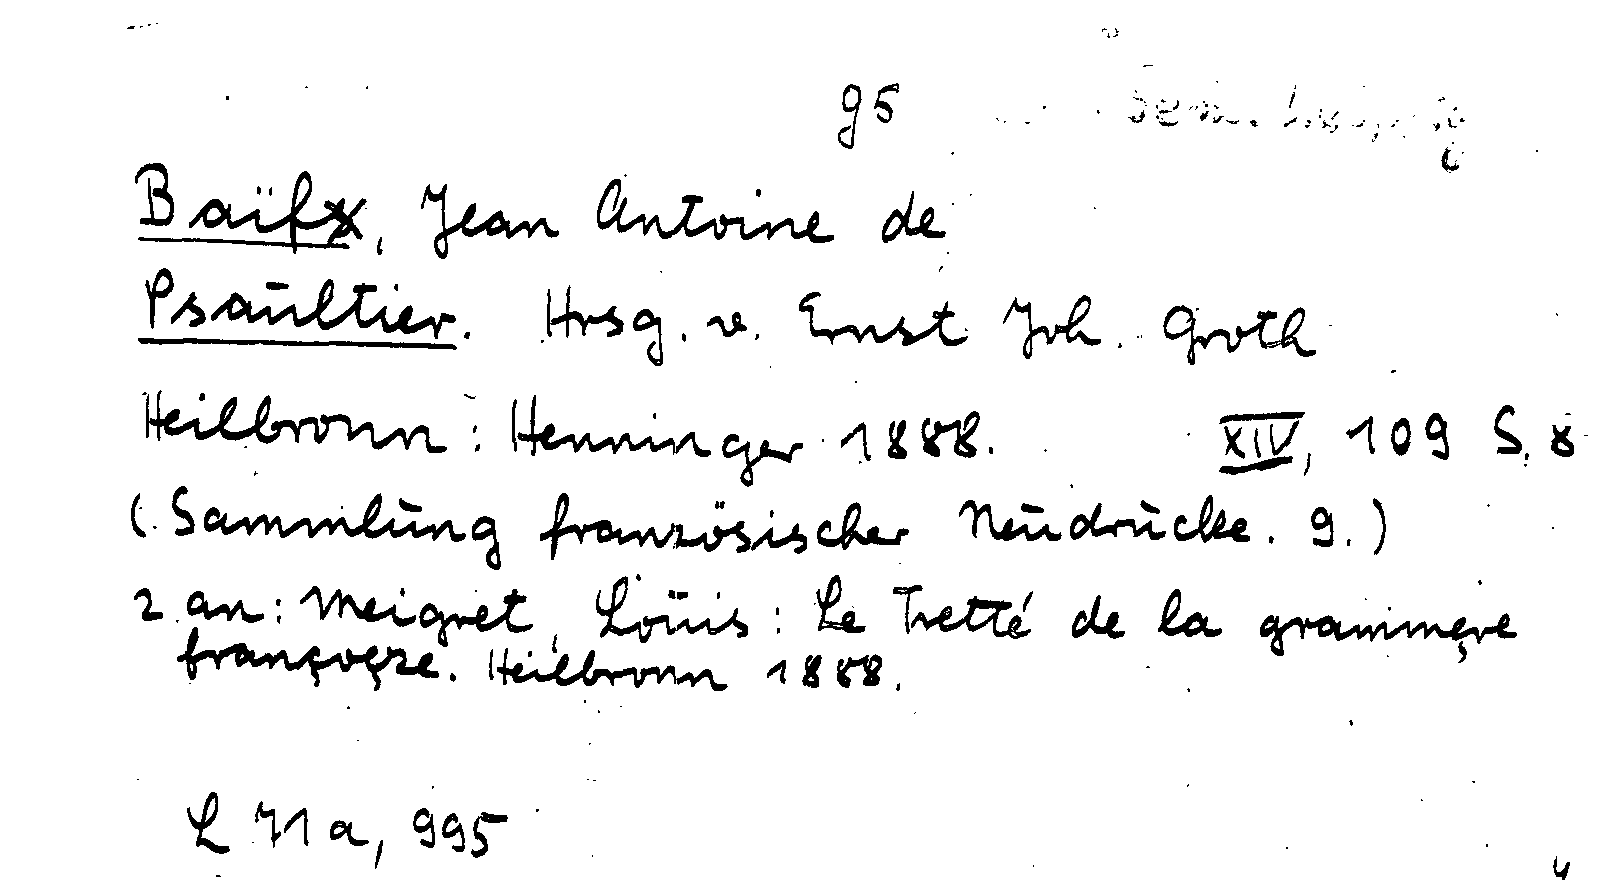 95
Baïf, Jean Antoine de
Psaultier. Hrsg. v. Ernst Joh. Groth
Heilbronn: Henninger 1888. XIV, 109 S. 8
(Sammlung französischer Neudrucke. 9.)
2 an: Meigret, Louis: Le Tretté de la grammęre
françoęze. Heilbronn 1888.
L 71a, 995